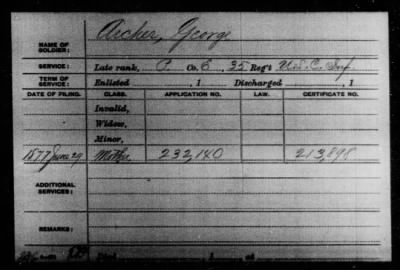 NAME OF SOLDIER: Archer, George
SERVICE: Late rank, P. Co. 35 Reg't U.S.C. Inf.
TERM OF SERVICE: Enlisted , 1 Discharged , 1
DATE OF FILING. CLASS. APPLICATION NO. LAW. CERTIFICATE NO.
Invalid,
Widow,
Minor,
1877 June 29 Mother, 232,140 213,898
ADDITIONAL SERVICES:
REMARKS: